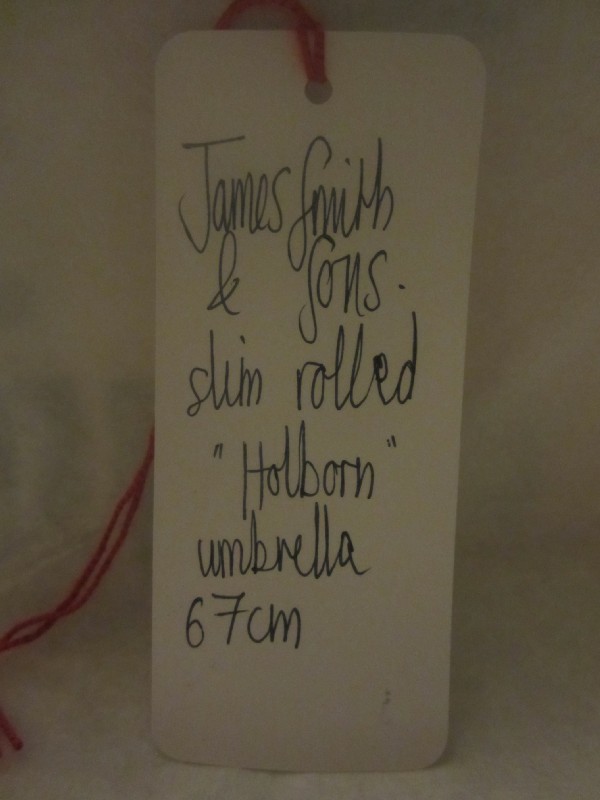 James Smith
& Sons.
slim rolled
"Holborn"
umbrella
67cm